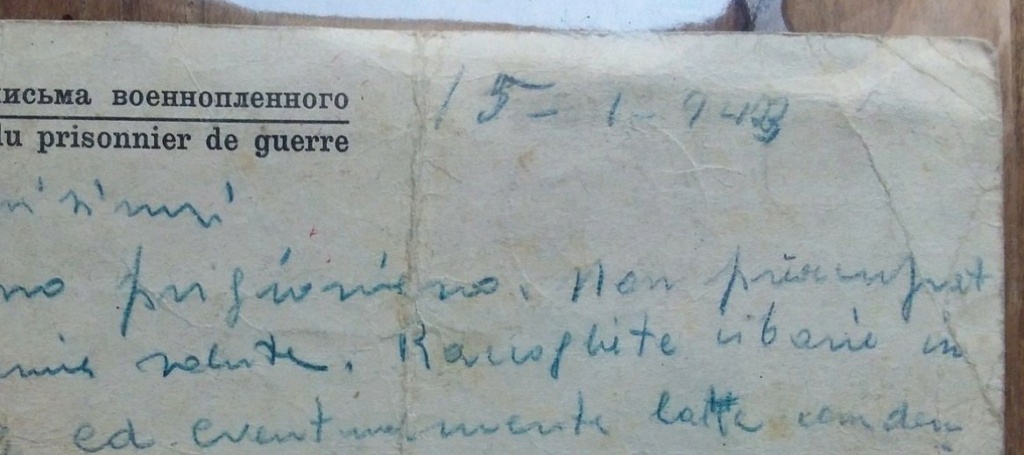 письма военнопленного
du prisonnier de guerre
15-1-943
no prigioniero. Non
mia salute. Raccogliete cibarie in
ed eventualmente latte conden